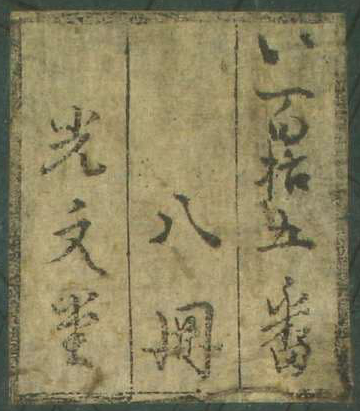 い一百拾五番
八冊
光文堂